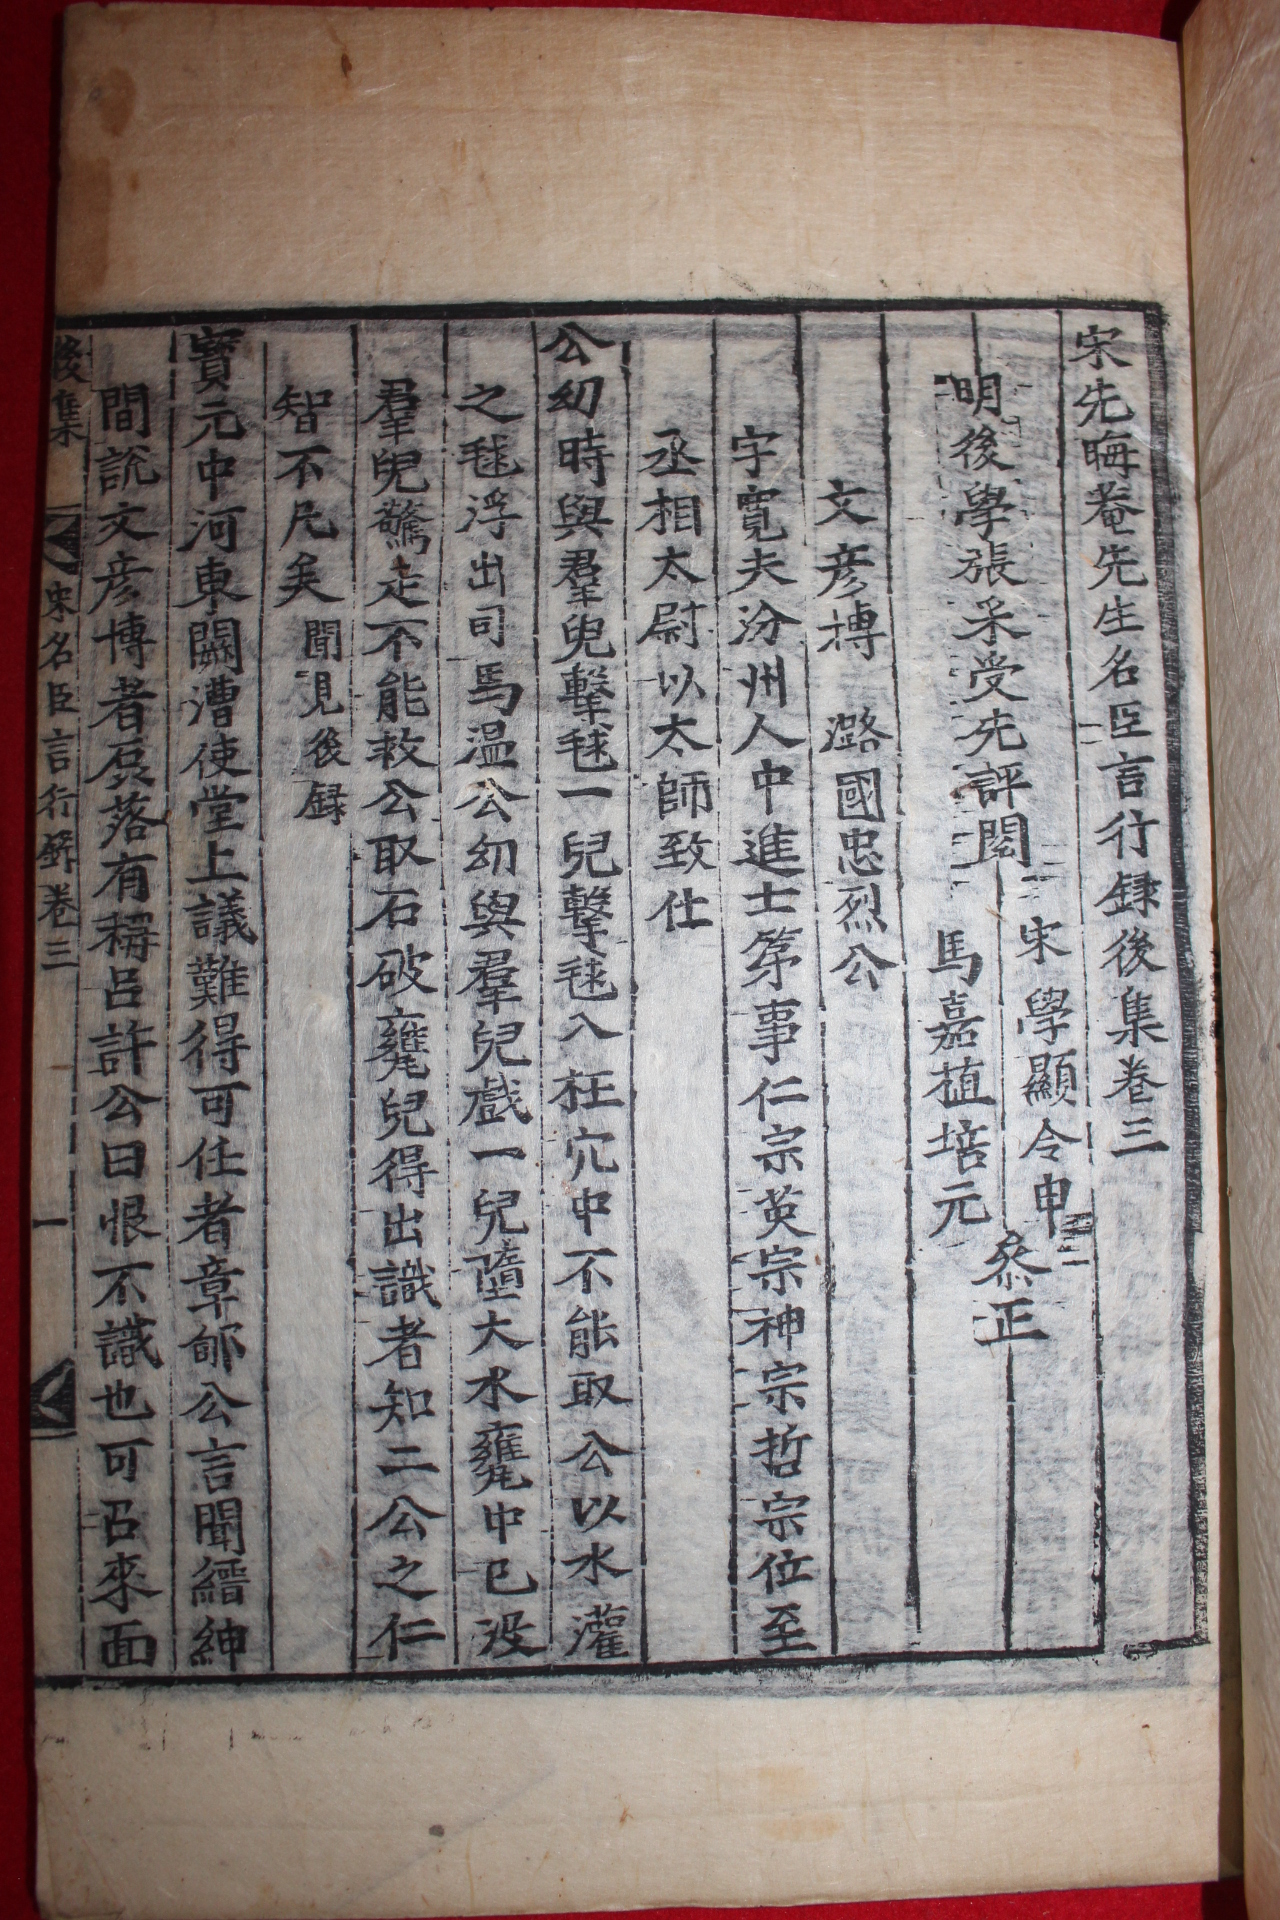 宋先晦菴先生名臣言行錄後集卷三
明後學張采受先評閱
宋學顯令申
馬嘉植培元
叅正
文彦博　潞國忠烈公
字寬夫汾州人中進士第事仁宗英宗神宗哲宗位至
丞相太尉以太師致仕
公幼時與羣兒擊毬一兒擊毬入枉穴中不能取公以水灌
之毬浮出司馬溫公幼與羣兒戲一兒墮大水甕中已没
羣兒驚走不能救公取石破甕兒得出識者知二公之仁
智不凡矣聞見後録
寶元中河東闕漕使堂上議難得可任者章郇公言聞縉紳
間說文彦博者磊落有稱呂許公曰恨不識也可召來面
後集　宋名臣言行錄卷三　一